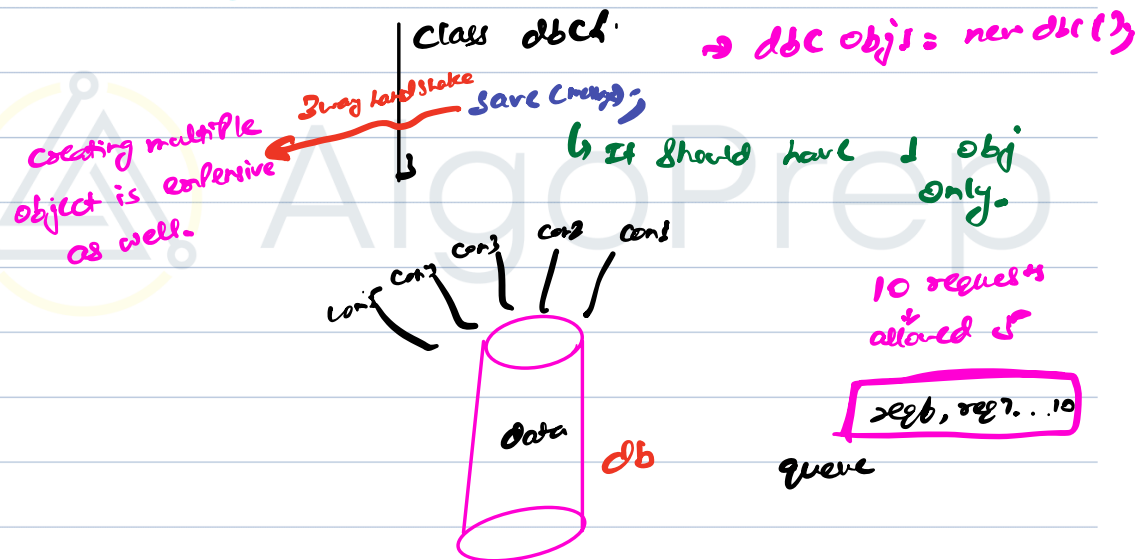 class dbC{
→ dbC obj1 = new dbC();
3 way handshake
save (message);
creating multiple
object is expensive
as well.
↳ It should have 1 obj
only.
AlgoPrep
con1
con2
con3
10 requests
↓
allowed 5
req6, req7...10
data
db
queue